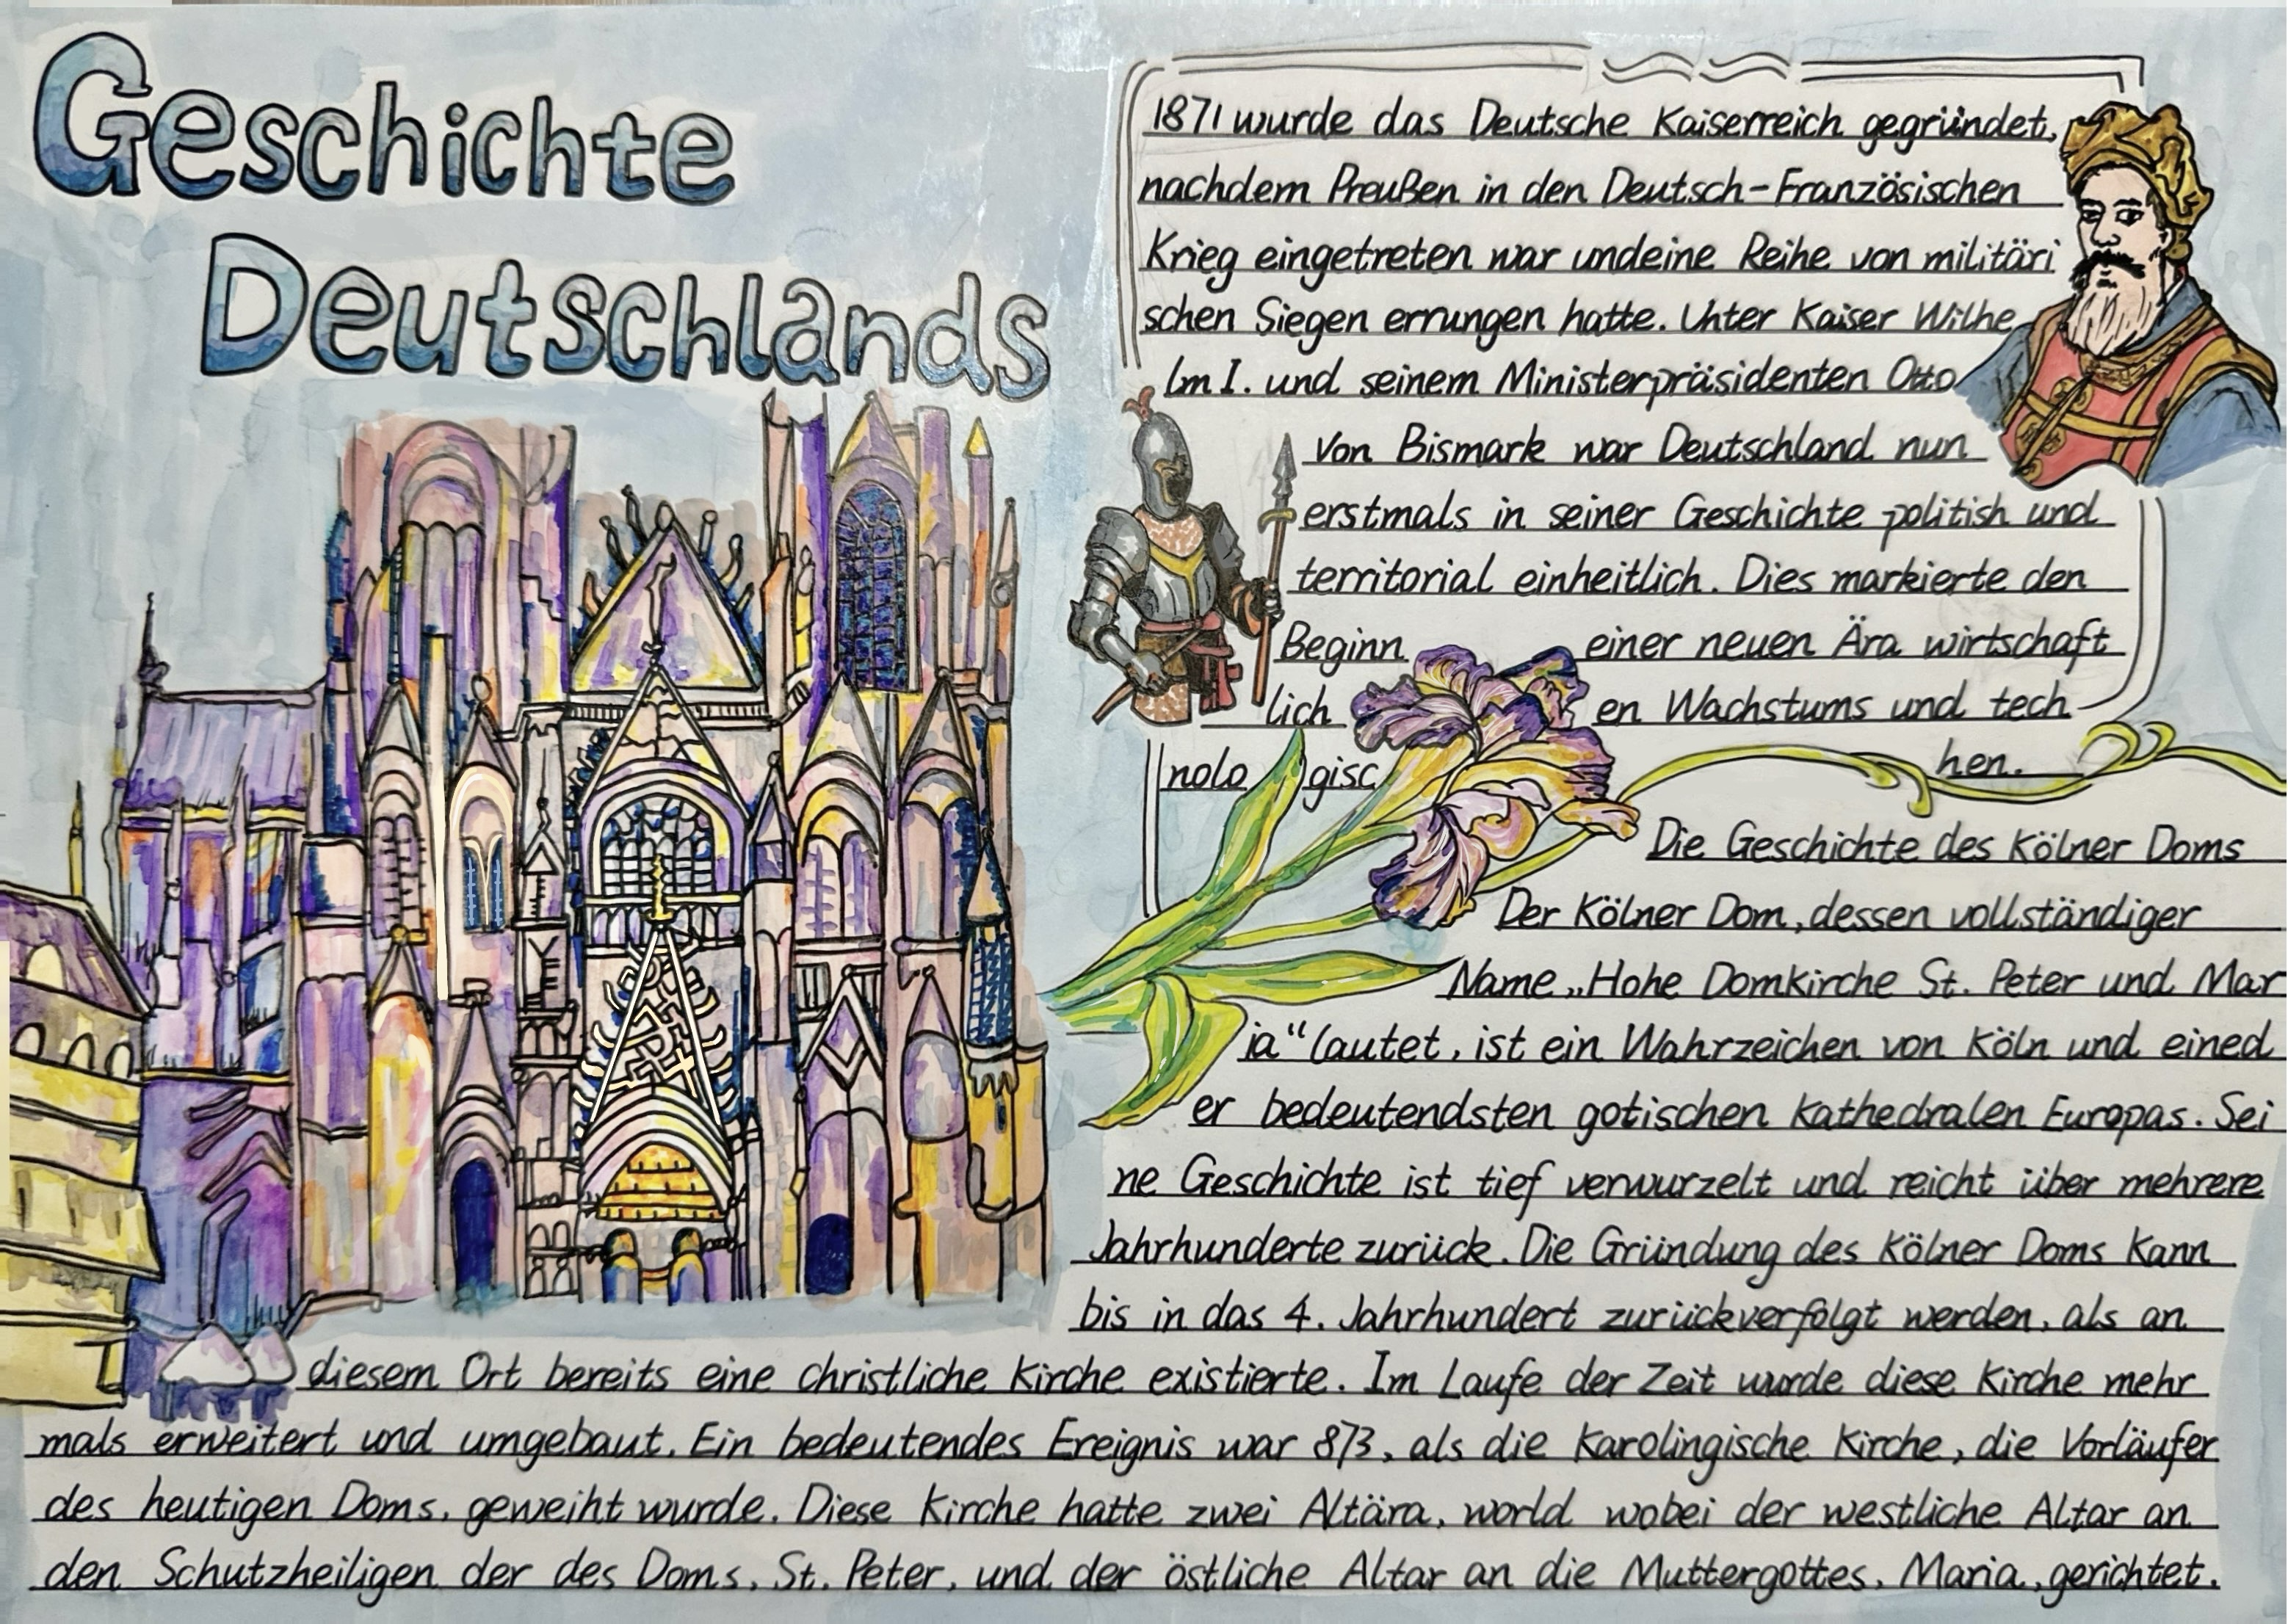 Geschichte
Deutschlands
1871 wurde das Deutsche Kaiserreich gegründet,
nachdem Preußen in den Deutsch-Französischen
Krieg eingetreten war undeine Reihe von militäri
schen Siegen errungen hatte. Unter Kaiser Wilhe
lm I. und seinem Ministerpräsidenten Otto
von Bismark war Deutschland nun
erstmals in seiner Geschichte politish und
territorial einheitlich. Dies markierte den
Beginn einer neuen Ära wirtschaft
lich en Wachstums und tech
nolo gisc hen.
Die Geschichte des Kölner Doms
Der Kölner Dom, dessen vollständiger
Name „Hohe Domkirche St. Peter und Mar
ia“ lautet, ist ein Wahrzeichen von Köln und eined
er bedeutendsten gotischen Kathedralen Europas. Sei
ne Geschichte ist tief verwurzelt und reicht über mehrere
Jahrhunderte zurück. Die Gründung des Kölner Doms kann
bis in das 4. Jahrhundert zurückverfolgt werden, als an
diesem Ort bereits eine christliche Kirche existierte. Im Laufe der Zeit wurde diese Kirche mehr
mals erweitert und umgebaut. Ein bedeutendes Ereignis war 873, als die Karolingische Kirche, die Vorläufer
des heutigen Doms, geweiht wurde. Diese Kirche hatte zwei Altära, world wobei der westliche Altar an
den Schutzheiligen der des Doms, St. Peter, und der östliche Altar an die Muttergottes, Maria, gerichtet.